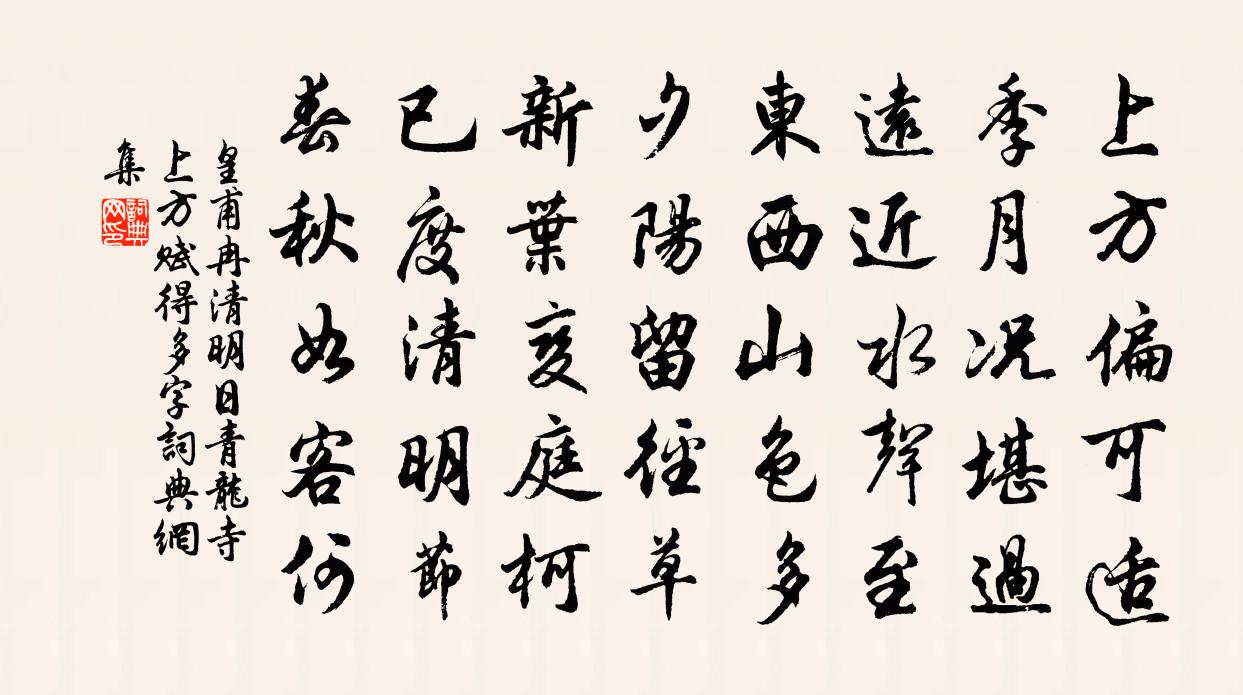 上方偏可适
季月况堪過
遠近水聲至
東西山色多
夕陽留徑草
新葉變庭柯
已度清明節
春秋如客何
皇甫冉清明日青龍寺
上方賦得多字詞典網
集
詞典网印